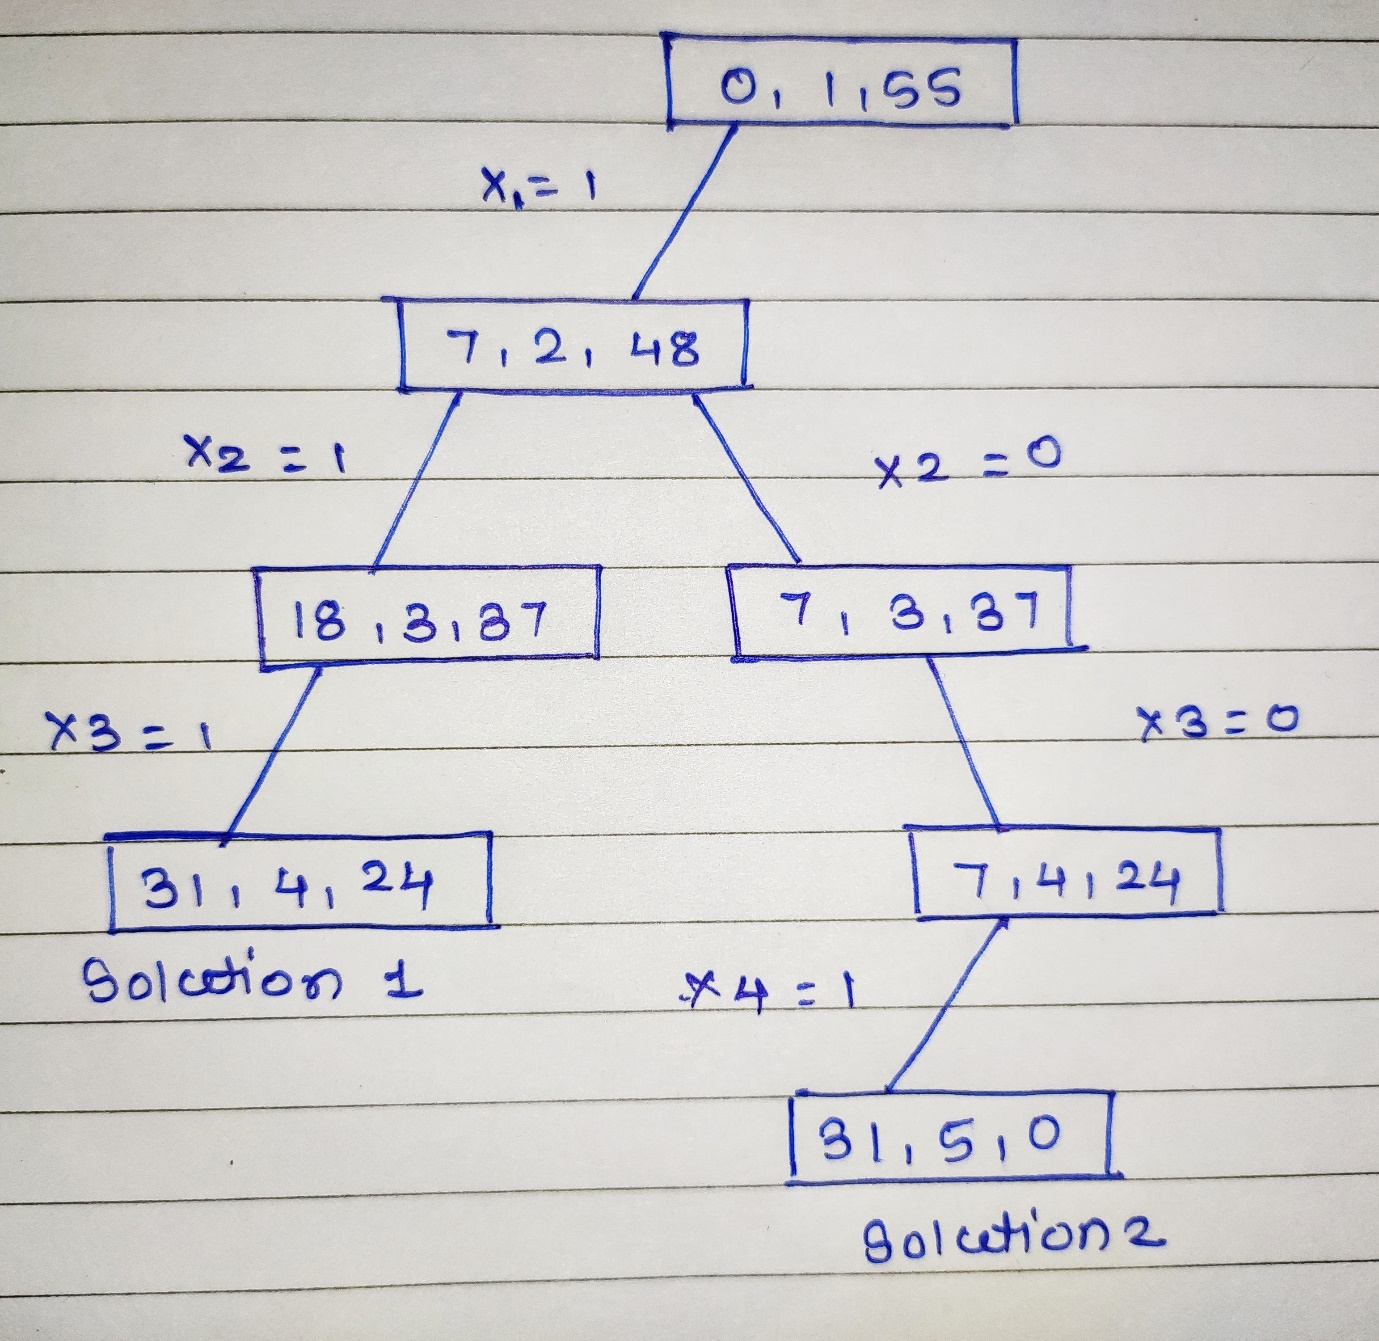 0, 1, 55
X1 = 1
7, 2, 48
X2 = 1
X2 = 0
18, 3, 37
7, 3, 37
X3 = 1
X3 = 0
31, 4, 24
7, 4, 24
Solution 1
X4 = 1
31, 5, 0
Solution 2